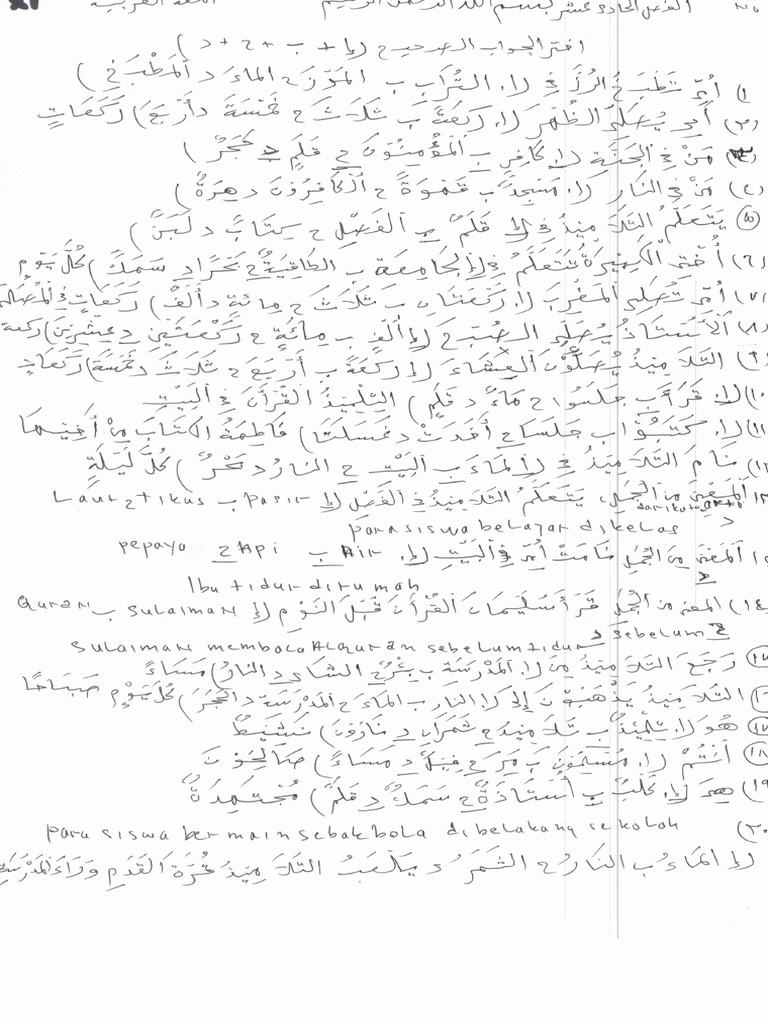 الفصل الحادي عشر بسم الله الرحمن الرحيم اللغة العربية XI
اختر الجواب الصحيح (ا + ب + ح + د)
١) أُمِّي تَطْبَخُ الرُّزَّ فِي (ا. التُّرَابِ ب المَوْزِ ح الماءِ د المَطْبَخِ)
٢) أَبِي يُصَلِّي الظُّهْرَ (ا. رَكْعَةً ب ثَلَاثَ ح خَمْسَةَ د أَرْبَعَ) رَكَعَاتٍ
٣) مَنْ فِي الجَنَّةِ (ا. كَافِرٌ ب المُؤْمِنُونَ ح قَلَمٌ د حَجَرٌ)
٤) مَنْ فِي النَّارِ (ا. مَسْجِدٌ ب قَهْوَةٌ ح الْكَافِرُونَ د هِرَةٌ)
٥) يَتَعَلَّمُ التَّلَامِيذُ فِي (ا قَلَمٌ ب الفَصْلِ ح كِتَابٌ د لَبَنٌ)
٦) أُخْتِي الْكَبِيرَةُ تَتَعَلَّمُ فِي (ا الجَامِعَةِ ب الطَّاقِيَةُ ح جَرَادٍ د سَمَكٌ) كُلَّ يَوْمٍ
٧) أُمِّي تُصَلِّي المَغْرِبَ (ا. رَكْعَتَانِ ب ثَلَاثَ ح مِائَةٍ د أَلْفٌ) رَكَعَاتٍ فِي الْمُصَلَّى
٨) الأُسْتَاذُ يُصَلِّي الصُّبْحَ (ا أَلْفٍ ب مِائَةٍ ح رَكْعَتَيْنِ د عِشْرِينَ) ركعة
٩) التَّلَامِيذُ يُصَلُّوْنَ العِشَاءَ (ا رَكْعَةً ب أَرْبَعَ ح ثَلَاثَ د خَمْسَةَ) رَكَعَاتٍ
١٠) (ا. قَرَأَ ب جَلَسُوا ح مَاءٌ د قَلَمٌ) التِّلْمِيذُ القُرْآنَ فِي البَيْتِ
١١) (ا. كَتَبُوْا ب جَلَسَا ح أَخَذَتْ د غَسَلَتَا) فَاطِمَةُ الكِتَابَ مِنْ أُخْتِهَا
١٢) نَامَ التَّلَامِيذُ فِي (ا المَاءِ ب البَيْتِ ح النارُ د بَحْرٌ) كُلَّ لَيْلَةٍ
المَعْنَى مِنَ الجُمَلِ. يَتَعَلَّمُ التَّلَامِيذُ فِي الفَصْلِ (ا pasir ب tikus ح Laut
para siswa belajar dikelas
المَعْنَى مِنَ الجُمَلِ نَامَتْ أُمِّي فِي البَيْتِ (ا. Air ب Api ح pepaya
Ibu tidur dirumah
١٤) المعنى من الجُمَلِ قَرَأَ سُلَيْمَانُ القُرْآنَ قَبْلَ النَّوْمِ (ا sulaiman ب Quran
ح sebelum د sulaiman membaca Alquran sebelum tidur
رَجَعَ التَّلَامِيذُ مِنَ (ا. المَدْرَسَةِ ب بُرْجٌ ح الشاي د النارُ) مَسَاءً
التَّلَامِيذُ يَذْهَبُوْنَ إِلَى (ا النار ب الماء ح المَدْرَسَةِ د الحَجَرَ) كُلَّ يَوْمٍ صَبَاحًا
١٧) هُوَ (ا. تِلْمِيْذٌ ب تَلَامِيذُ ح شَهْرَانِ د مَارُوْنَ) نَشِيْطٌ
١٨) أَنْتُمْ (ا. مُسْلِمُوْنَ ب مَرَحٌ ح فِيْلٌ د مَسَاءً) صَالِحُوْنَ
١٩) هِيَ (ا. كَلْبٌ ب أُسْتَاذَةٌ ح سَمَكٌ د قَلَمٌ) مُجْتَهِدَةٌ
٢٠) para siswa bermain sebakbola dibelakang sekolah
(ا المَاءُ ب النَّارُ ح الثَّمَرُ د يَلْعَبُ التَّلَامِيذُ كُرَةَ القَدَمِ وَرَاءَ المَدْرَسَةِ